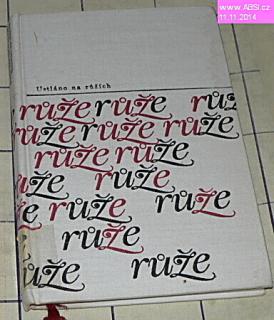 www.ABSi.cz
11.11.2014
Ustláno na růžích
růže růže růže
růže růže růže
růže růže
růže růže
růže růže
růže růže
růže růže